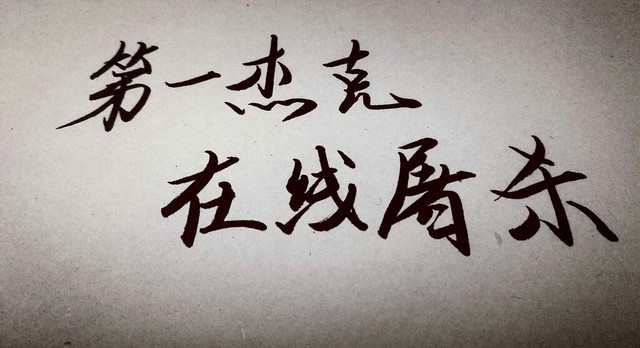 第一杰克
在线屠杀